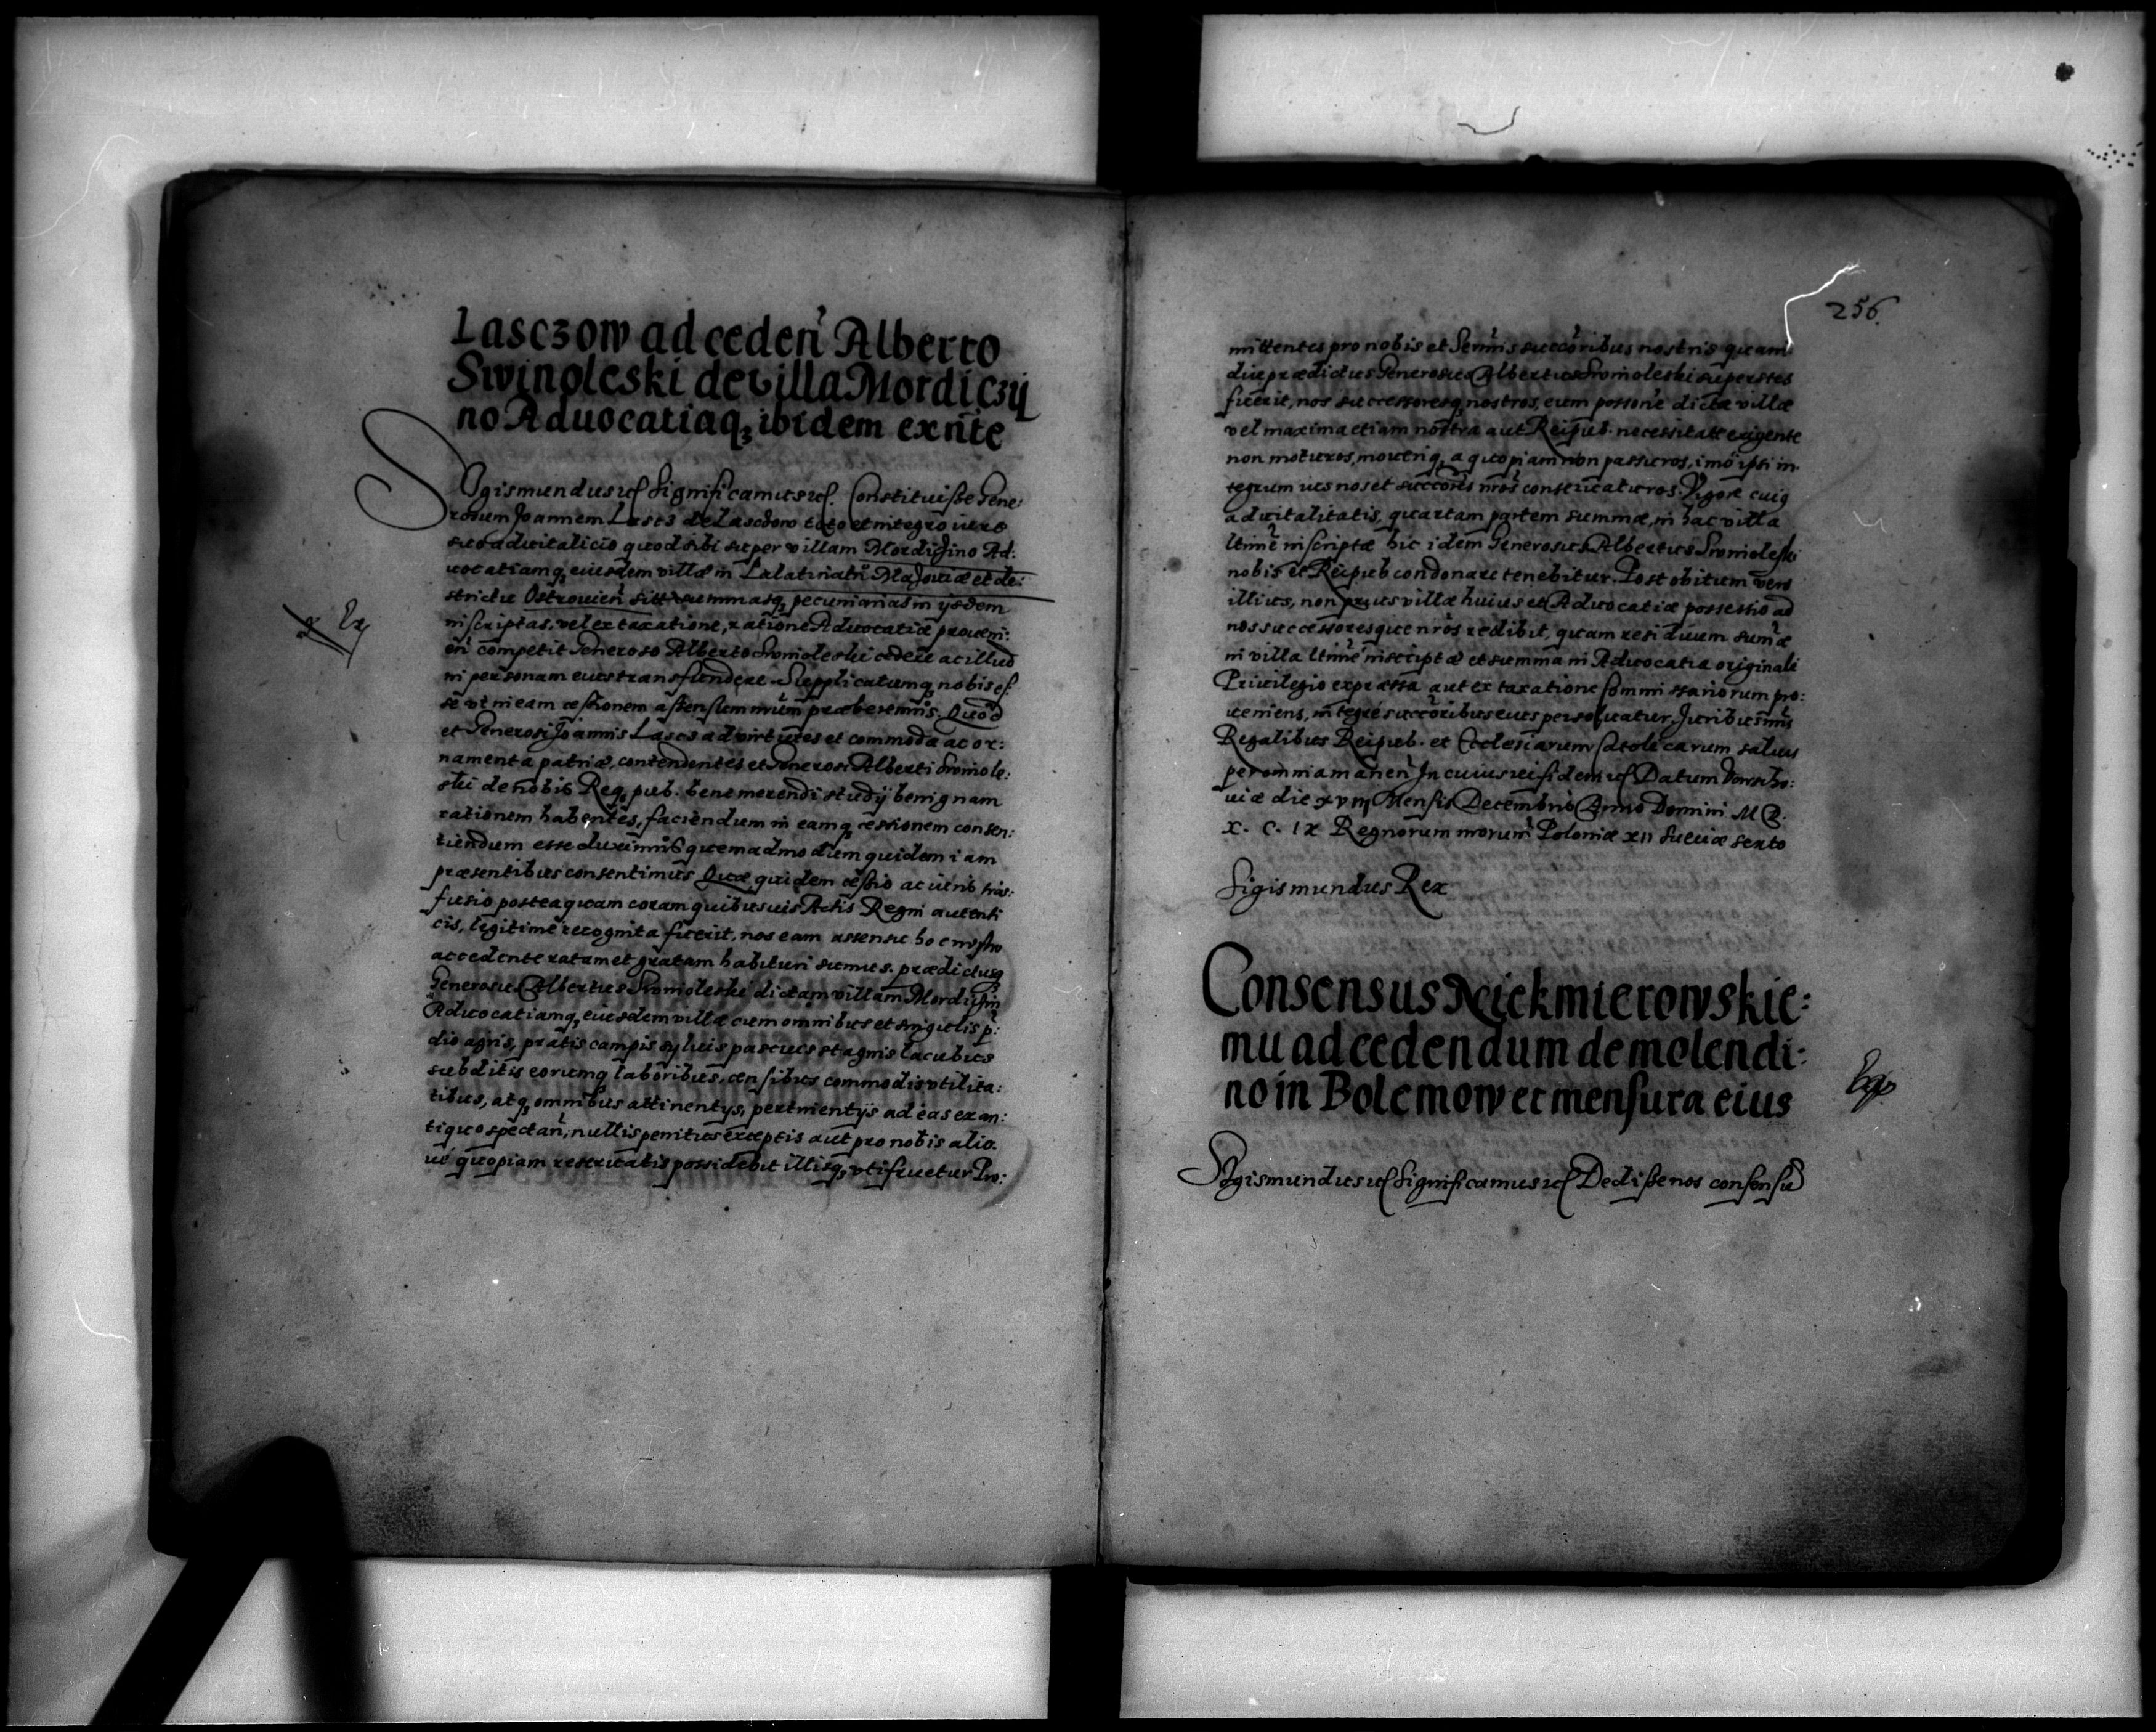 Lasczow ad ceden̄ Alberto
Swinoleski de villa Mordiczij
no Aduocatiaq; ibidem exn̄te
Sigismundus etc̄ Significamus etc̄. Constituisse Gene:
rosum Joannem Lascz de Lasczow toto et integro iure
suo aduitalicio quod sibi super villam Mordijino Ad:
uocatiamq; eiusdem villæ in Palatinatu Masouiæ et di:
strictu Ostrouien̄ summasq; pecuniarias in ijsdem
inscriptas, vel ex taxatione, ratione Aduocatiæ proueni:
en̄ competit Generoso Alberto Swinoleski cedere ac illud
in personam eius transfundere. Supplicatumq; nobis es:
se vt in eam cessionem assensum nr̄um præberemus. Quod
et Generosi Joannis Lascz ad virtutes et commoda ac or:
namenta patriæ, contendentes et Generosi Alberti Swinole:
ski de nobis Req; pub. bene merendi studij benignam
rationem habentes, faciendum in eamq; cessionem consen:
tiendum esse duximus quemadmodum quidem iam
præsentibus consentimus. Quæ quidem cessio ac iuris trās:
fusio posteaquam coram quibusuis Actis Regni autenti
cis, legitime recognita fuerit, nos eam assensu hoc nostro
accedente ratam et gratam habituri sumus. prædictusq;
Generosus Albertus Swinoleski dictam villam Mordijin
Aduocatiamq; eiusdem villæ cum omnibus et singulis p̄:
dijs agris, pratis campis syluis pascuis stagnis lacubus
subditis eorumq; laboribus, censibus commodis vtilita:
tibus, atq; omnibus attinentijs, pertinentijs ad eas ex an:
tiquo spectan̄, nullis penitus exceptis aut pro nobis alio
ue quopiam reseruatis possidebit illisq; vtifruetur Pro:
256.
mittentes pro nobis et Seren̄is succōribus nostris quam
diu prædictus Generosus Albertus Swinoleski superstes
fuerit, nos successoresq; nostros, eum possone dictæ villæ
vel maxima etiam nostra aut Reipub. necessitate exigente
non moturos, moueriq; a quopiam non passuros, imo ipsi in
tegrum ius nos et succores nros conseruaturos. Vigore cuius
aduitalitatis, quartam partem summæ, in hac villa
ltime inscriptæ hic idem Generosus Albertus Swinoleski
nobis et Reipub condonare tenebitur. Post obitum vero
illius, non prius villæ huius et Aduocatiæ possessio ad
nos successoresque nros redibit, quam residuum sum̄æ
in villa ltime inscriptæ et summa in Aduocatia originali
Priuilegio expressa aut ex taxatione Commissariorum pro:
ueniens, integre succōribus eius persoluatur, Juribus nr̄is
Regalibus Reipub. et Ecclesiarum catolicarum saluis
per omnia manen̄. In cuius rei fidem etc̄ Datum Varscho:
uiæ die xviij Mensis Decembris Anno Domini M D.
x. c. ix Regnorum nrorum Poloniæ xii Sueciæ sexto
Sigismundus Rex
Consensus Niekmierowskie:
mu ad cedendum de molendi:
no in Bolemow et mensura eius
Sigismundus etc̄ Significamus etc̄ Dedisse nos consensū